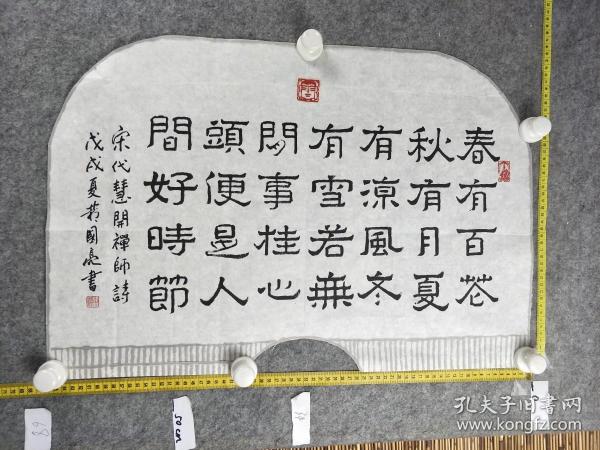 春有百花
秋有月夏
有凉風冬
有雪若無
閑事挂心
頭便是人
間好時節
宋代慧開禪師詩
戊戌夏黄國亮書
50cm
68
孔夫子旧书网
www.kongfz.com